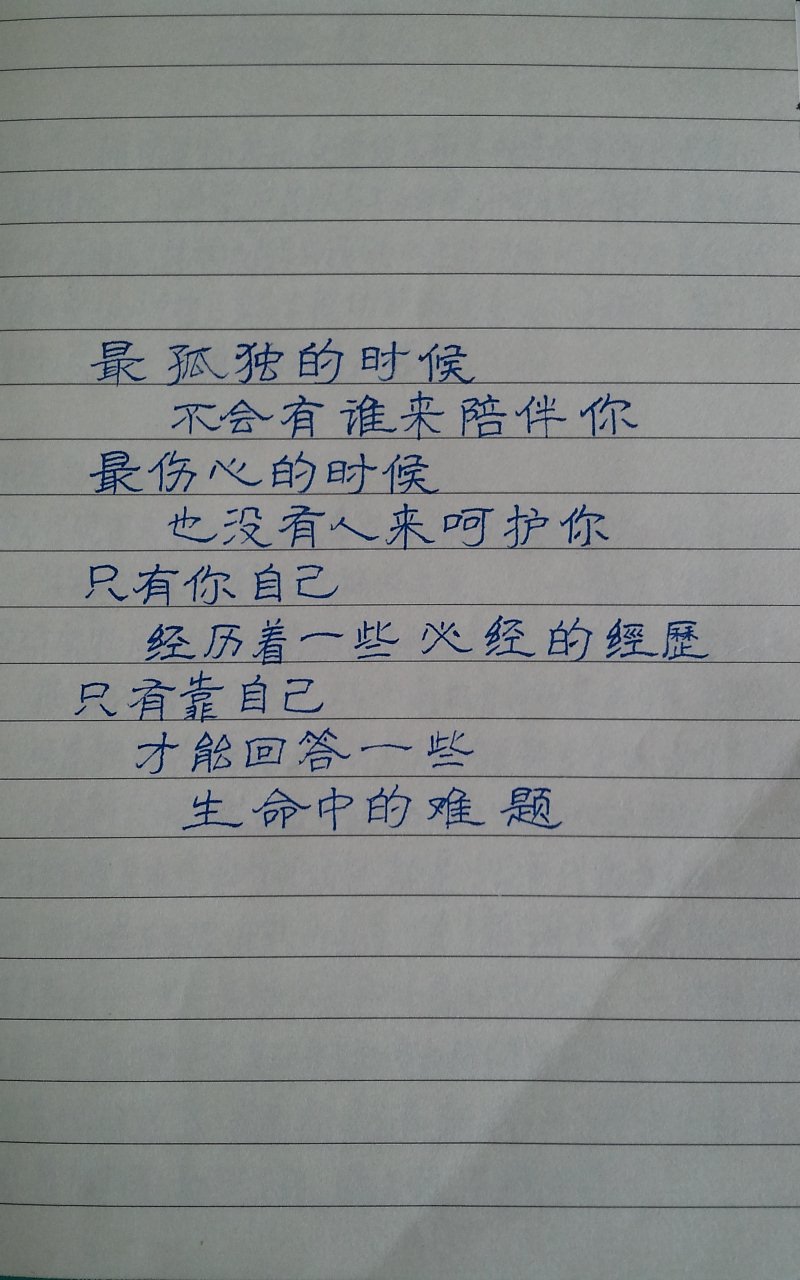 最孤独的时候
不会有谁来陪伴你
最伤心的时候
也没有人来呵护你
只有你自己
经历着一些必经的經歷
只有靠自己
才能回答一些
生命中的难题